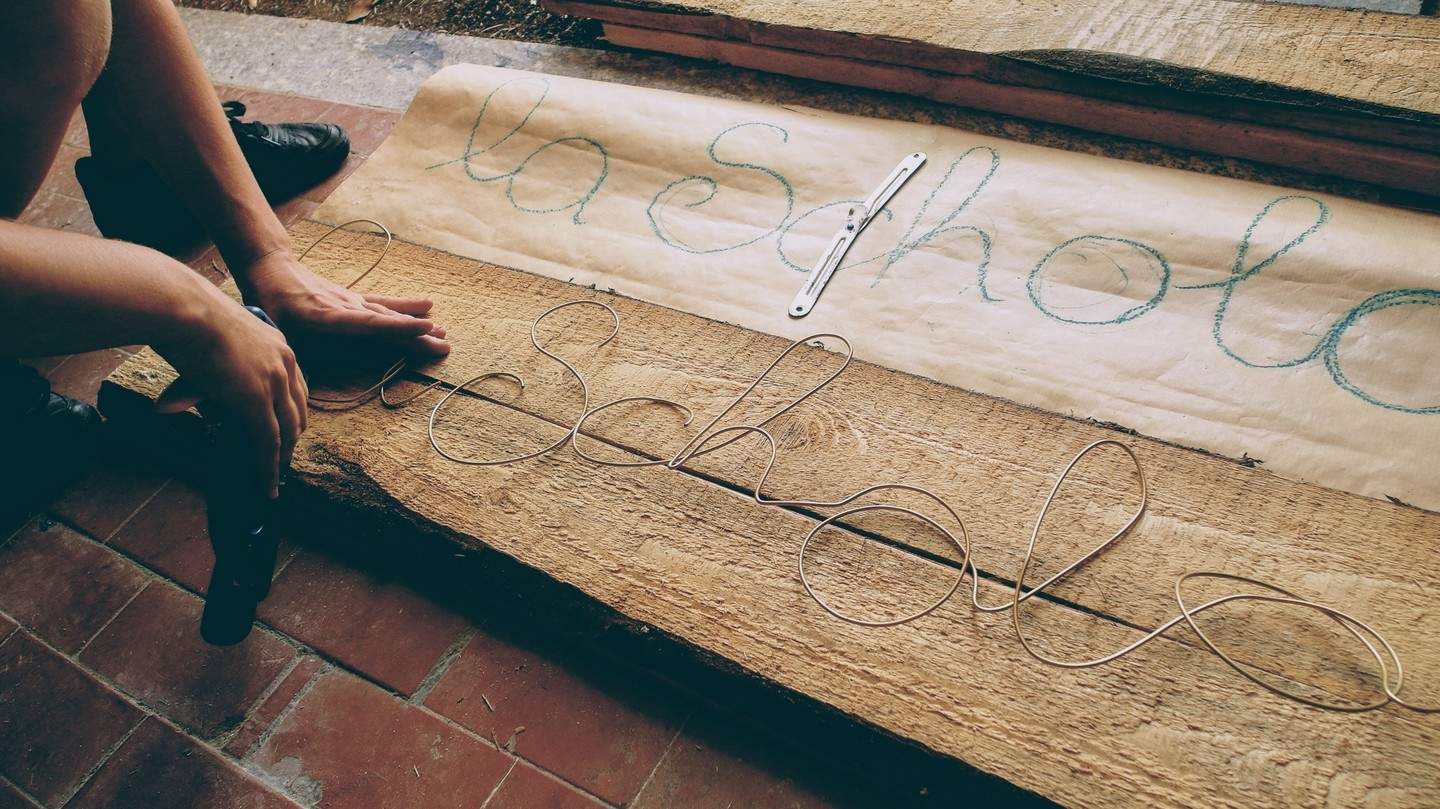 la Schola
Schola